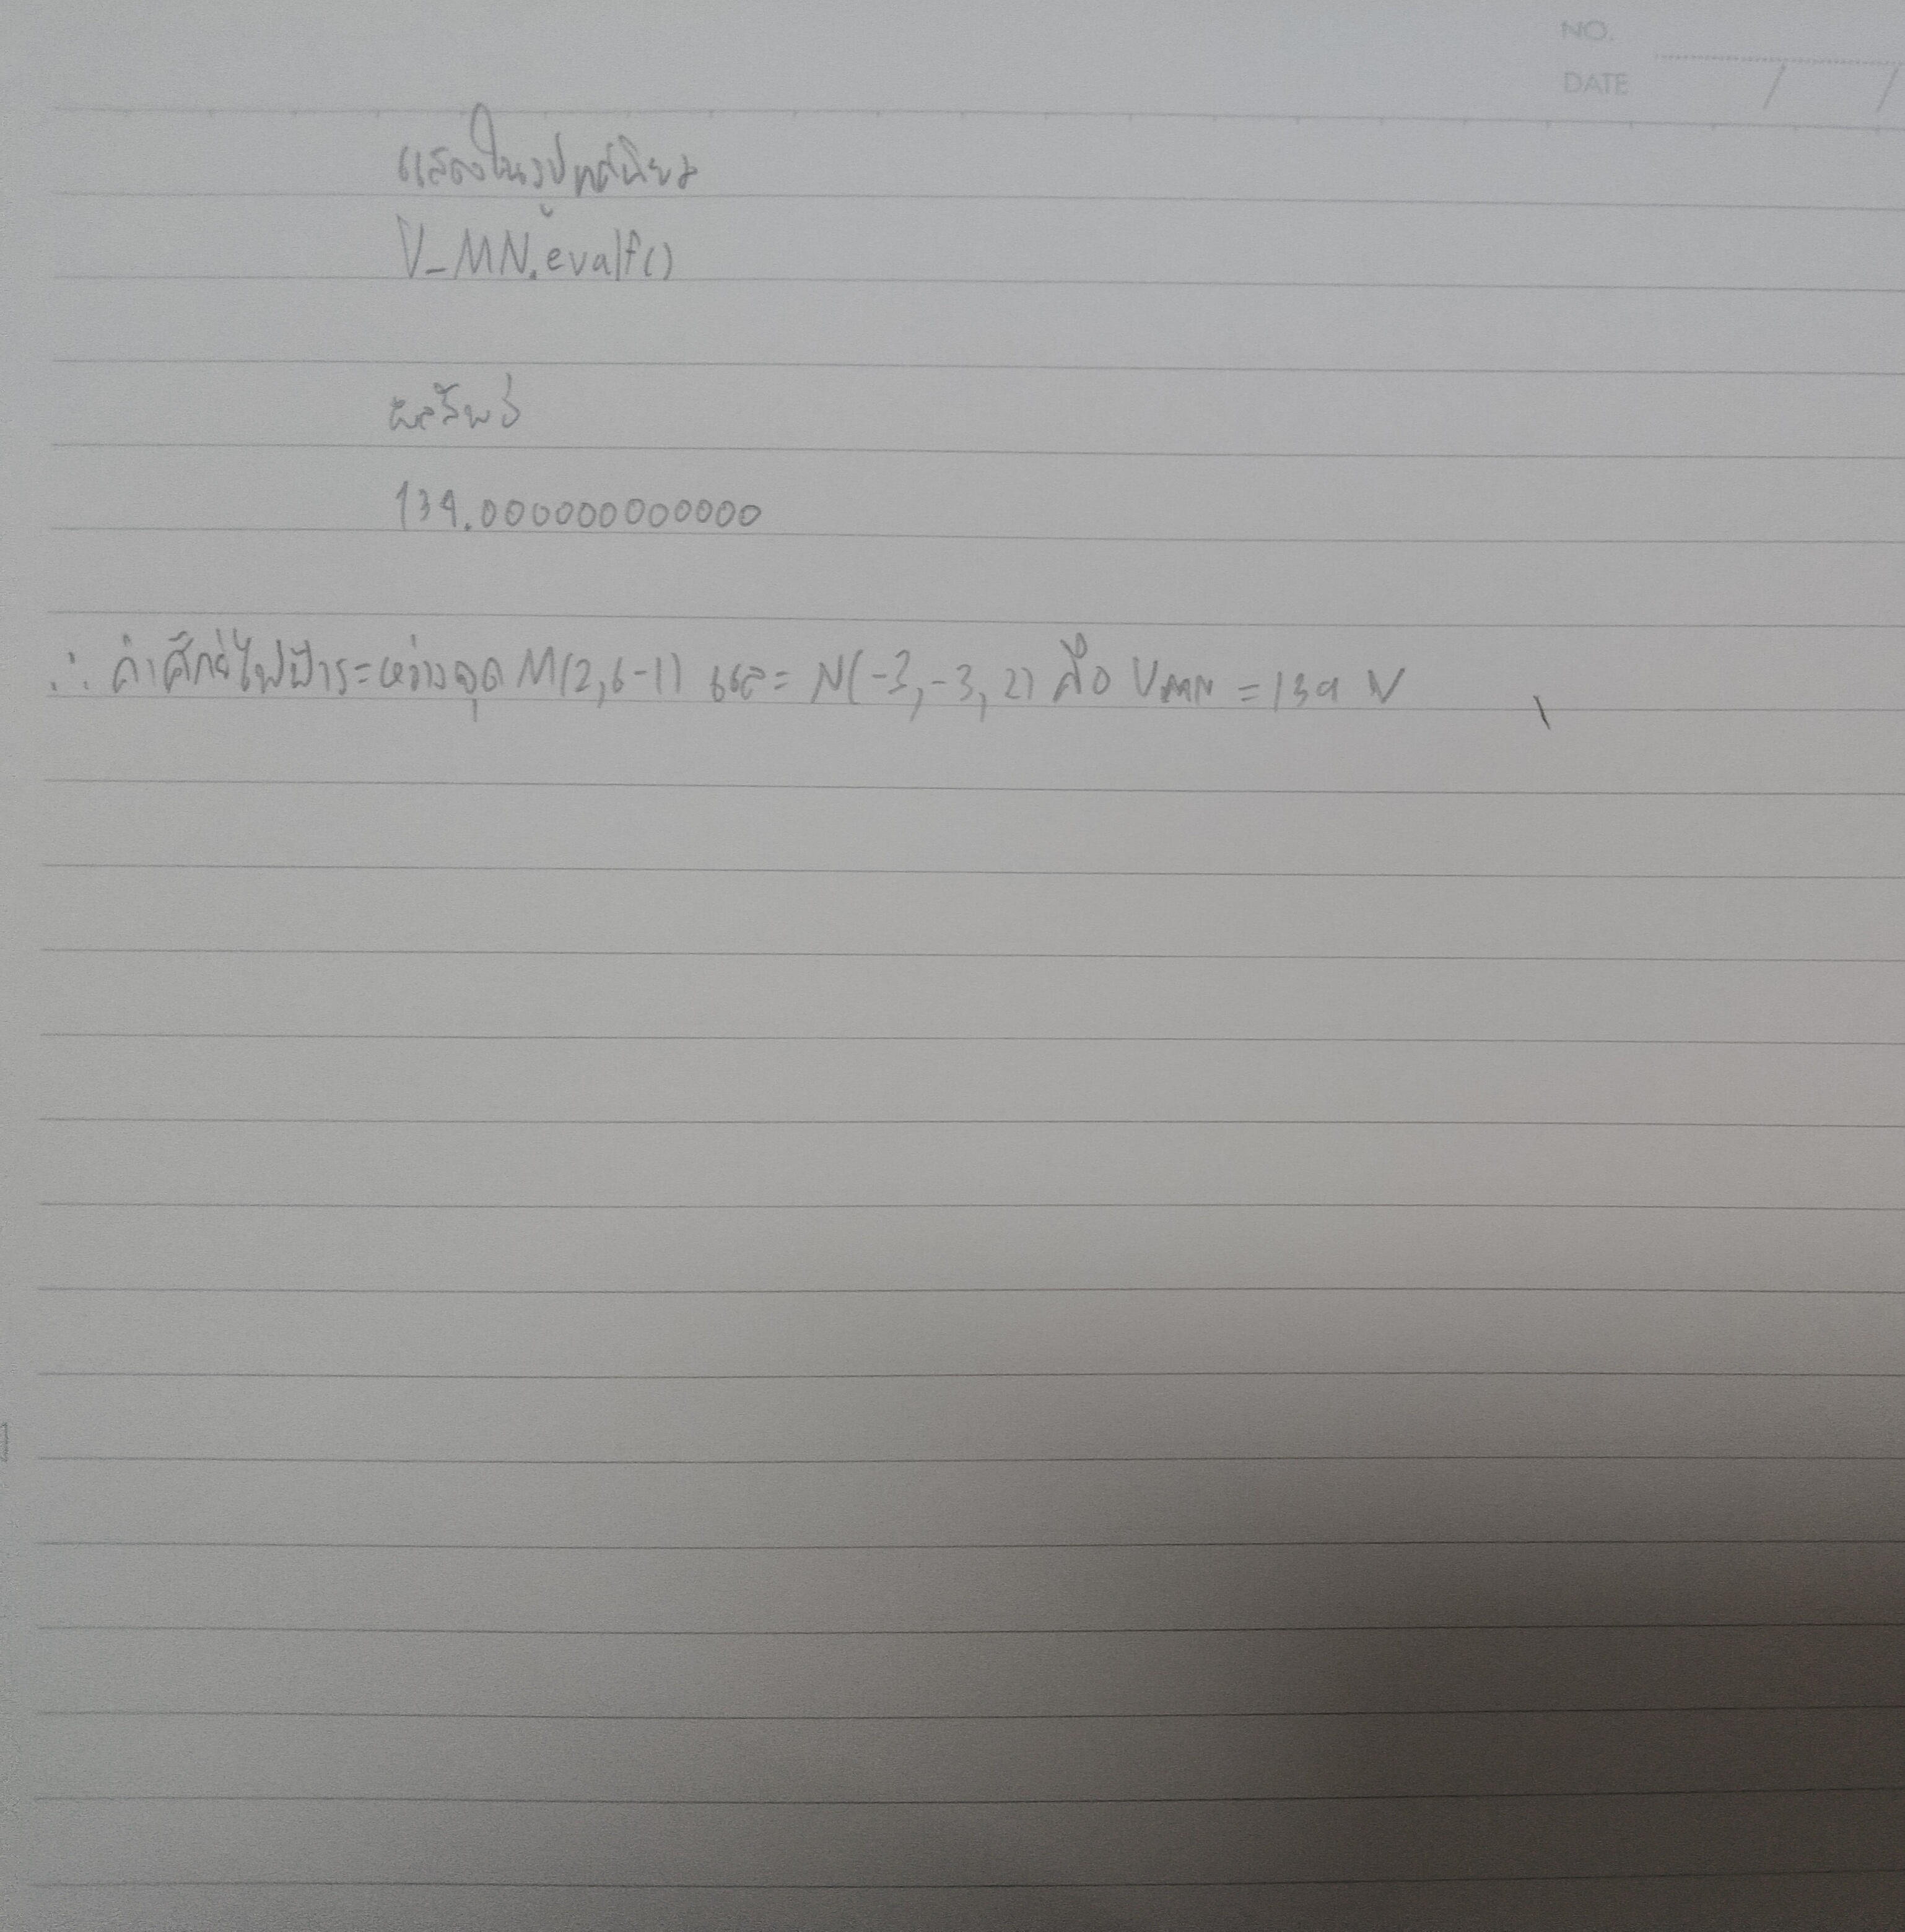 NO.
DATE / /
แสดงในรูปทศนิยม
V_MN.evalf()
ผลลัพธ์
139.000000000000
∴ ค่าศักย์ไฟฟ้าระหว่างจุด M(2,6-1) และ N(-3,-3,2) คือ VMN = 139 V